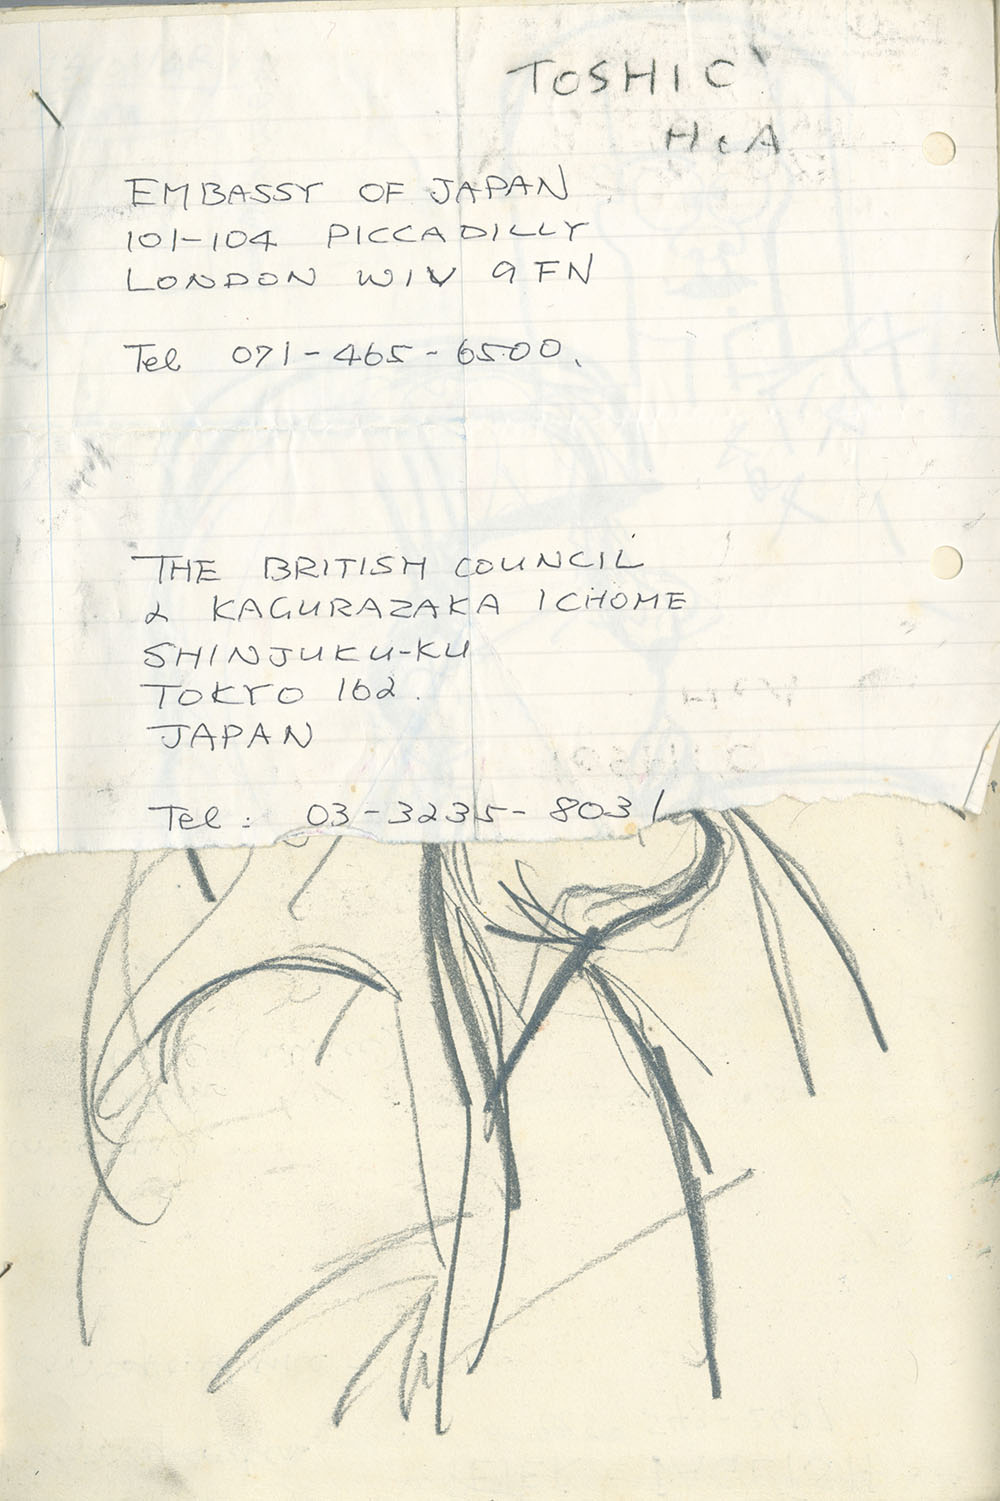 TOSHIC
H&A
EMBASSY OF JAPAN
101-104 PICCADILLY
LONDON W1V 9FN
Tel 071-465-6500.
THE BRITISH COUNCIL
2 KAGURAZAKA 1CHOME
SHINJUKU-KU
TOKYO 162.
JAPAN
Tel: 03-3235-8031